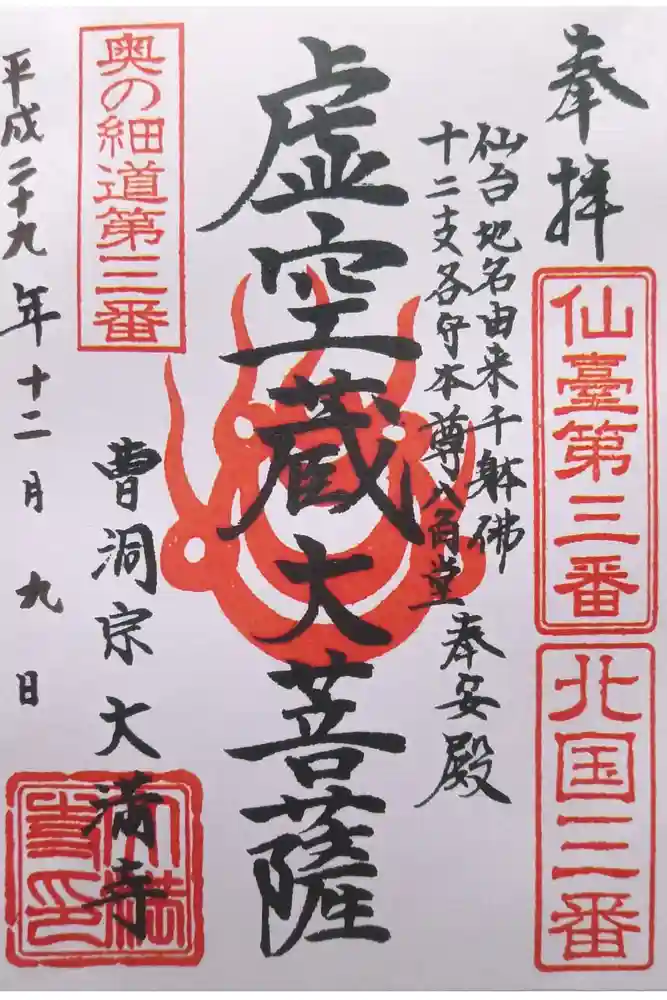 奉拝
仙臺第三番
北国三番
仙台地名由来千躰佛
十二支各守本尊八角堂
奉安殿
虚空蔵大菩薩
奥の細道第三番
曹洞宗大満寺
平成二十九年十二月九日